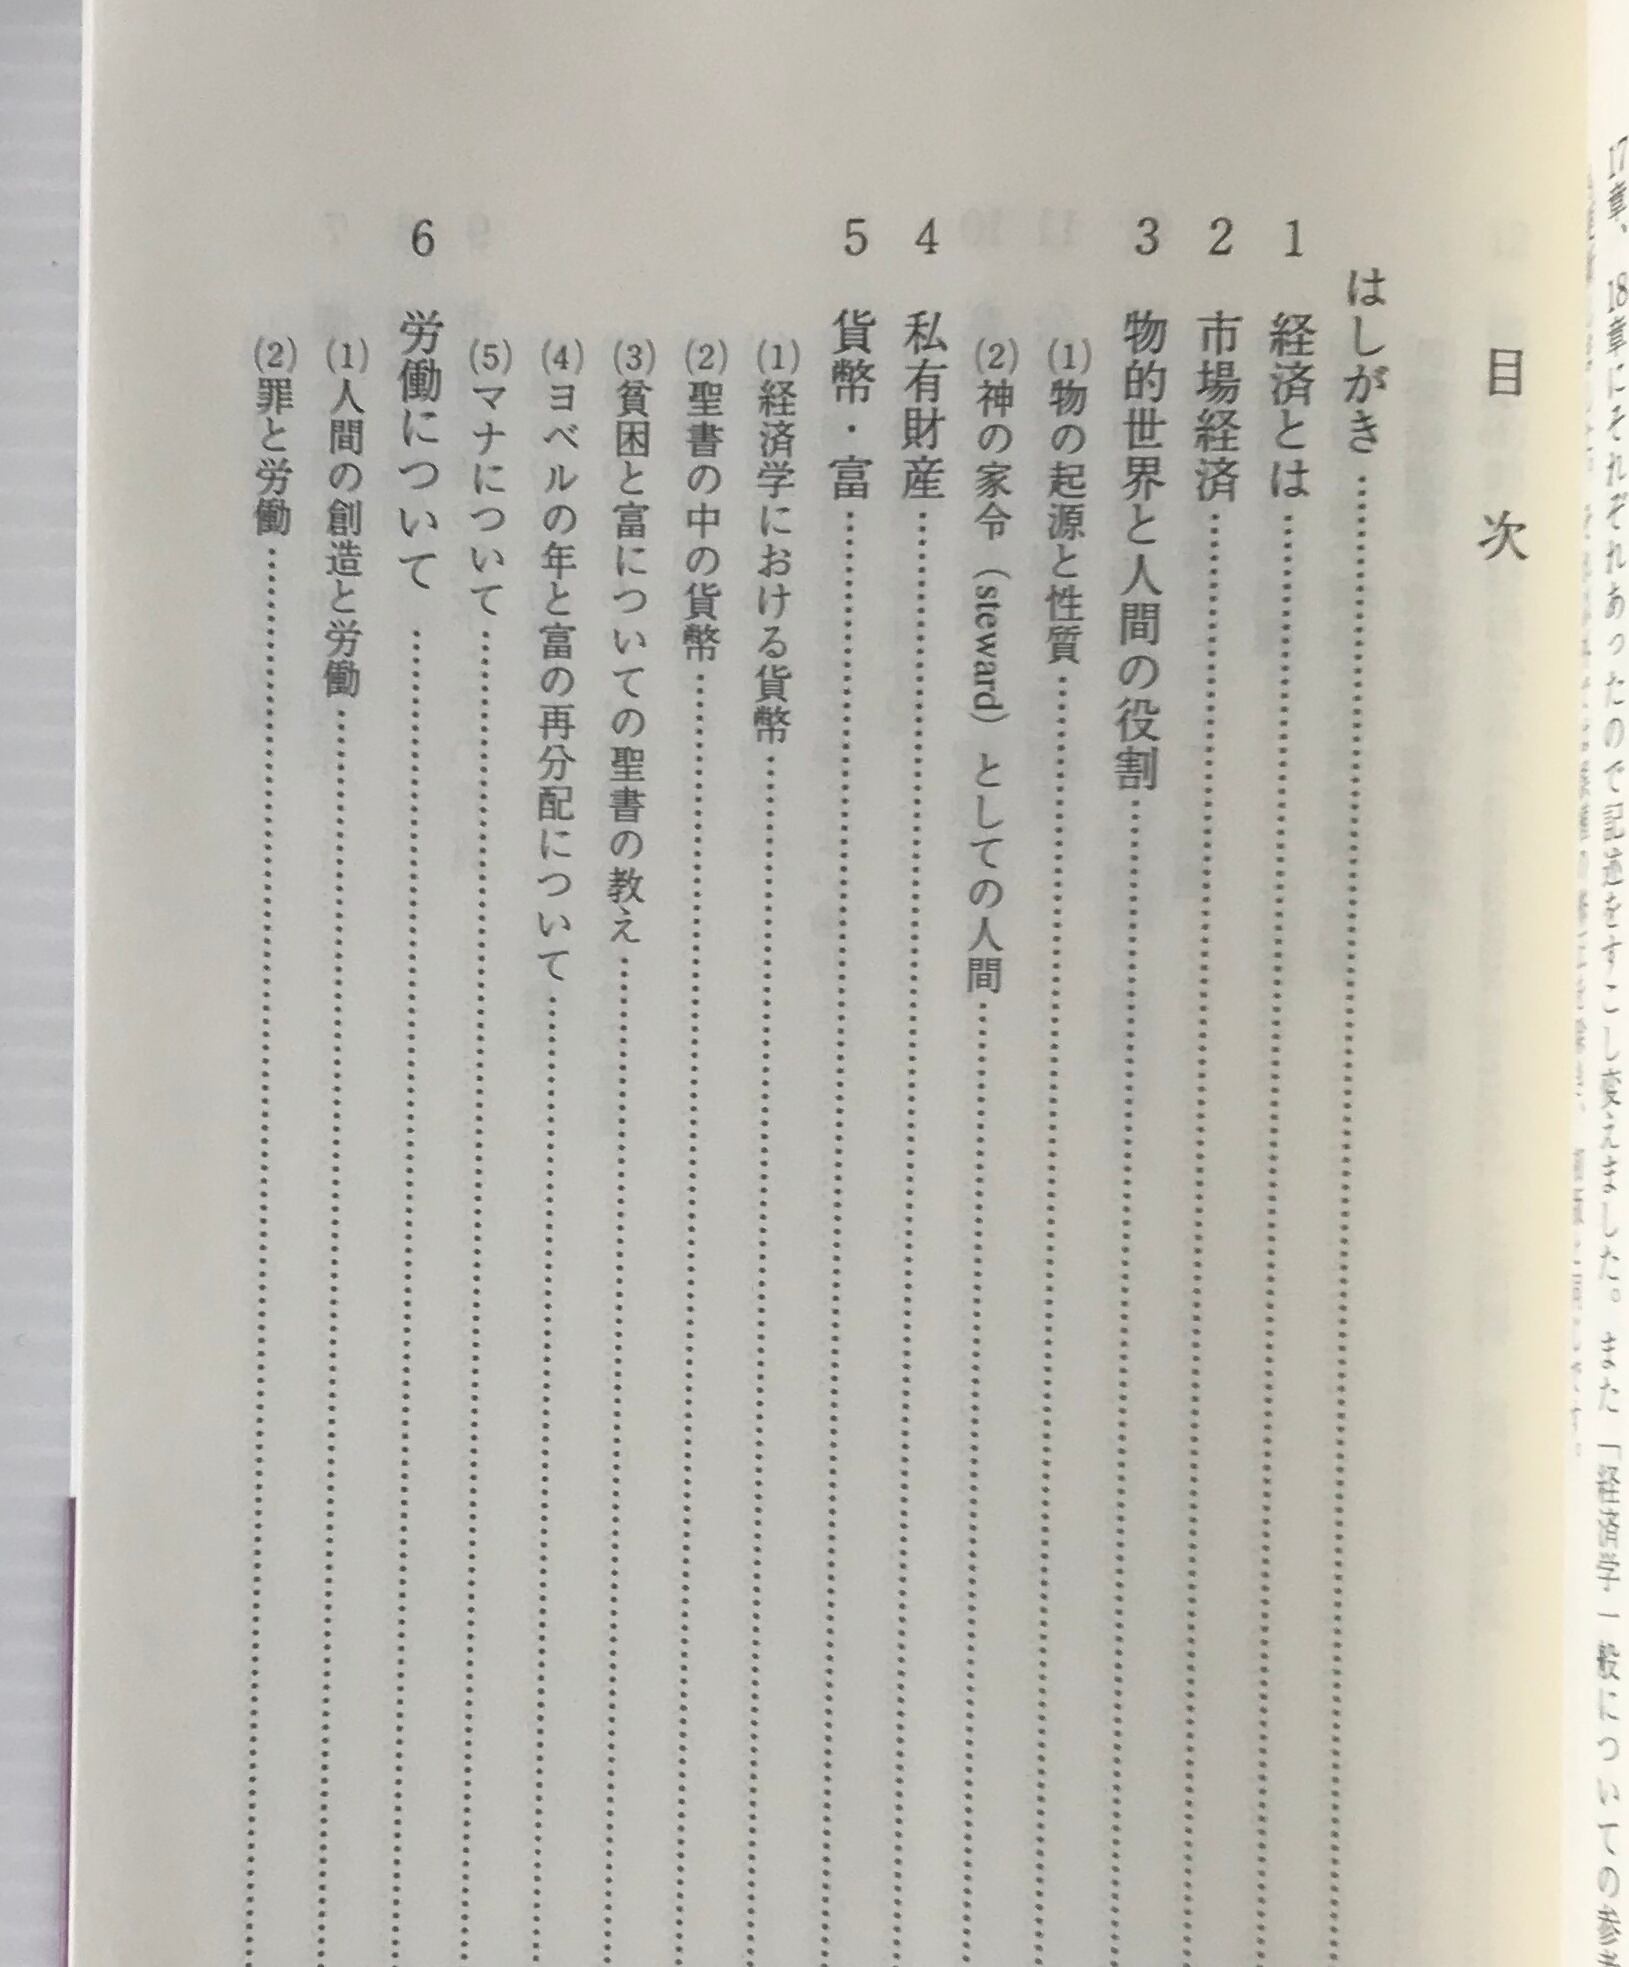 17章、18章にそれぞれあったので記述をすこし変えました。また「経済学一般についての参考
目次
はしがき
1 経済とは
2 市場経済
3 物的世界と人間の役割
(1) 物の起源と性質
(2) 神の家令（steward）としての人間
4 私有財産
5 貨幣・富
(1) 経済学における貨幣
(2) 聖書の中の貨幣
(3) 貧困と富についての聖書の教え
(4) ヨベルの年と富の再分配について
(5) マナについて
6 労働について
(1) 人間の創造と労働
(2) 罪と労働